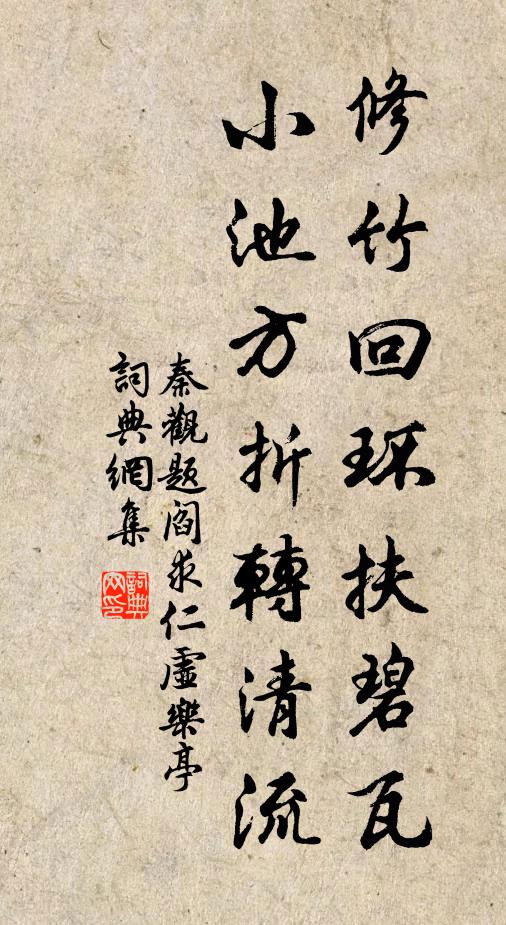 修竹回环扶碧瓦
小池方折轉清流
秦觀題閻求仁虛樂亭
詞典網集
詞典网印